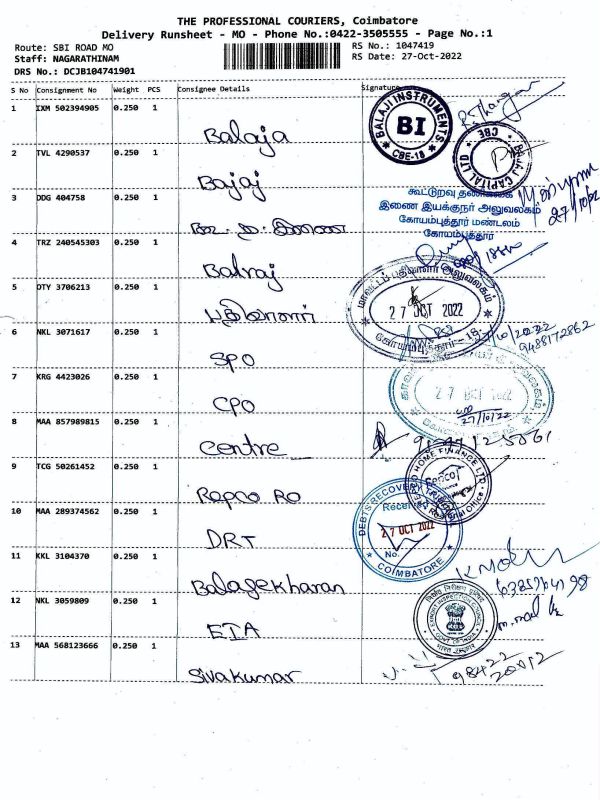 THE PROFESSIONAL COURIERS, Coimbatore
Delivery Runsheet - MO - Phone No.:0422-3505555 - Page No.:1
Route: SBI ROAD MO
RS No.: 1047419
Staff: NAGARATHINAM
RS Date: 27-Oct-2022
DRS No.: DCJB104741901
S No Consignment No Weight PCS Consignee Details Signature
1 IXM 502394905 0.250 1
Balaja
BALAJI INSTRUMENTS
BI
CBE-18
2 TVL 4290537 0.250 1
Bajaj
BAJAJ CAPITAL LTD
CBE
3 DDG 404758 0.250 1
கூட்டுறவு தணிக்கை
இணை இயக்குநர் அலுவலகம்
கோயம்புத்தூர் மண்டலம்
கோயம்புத்தூர்
27/10/22
4 TRZ 240545303 0.250 1
Balraj
5 OTY 3706213 0.250 1
பதிவாளர்
மாவட்டப் பதிவாளர் அலுவலகம்
27 OCT 2022
கோயம்புத்தூர் - 18
6 NKL 3071617 0.250 1
SPO
9488172862
7 KRG 4423026 0.250 1
CPO
27 OCT 2022
27/10/22
8 MAA 857989815 0.250 1
Centre
9 TCG 50261452 0.250 1
Repco Ro
HOME FINANCE LTD
10 MAA 289374562 0.250 1
DRT
DEBTS RECOVERY TRIBUNAL
Received
27 OCT 2022
No.
COIMBATORE
11 KKL 3104370 0.250 1
Balasekharan
12 NKL 3059809 0.250 1
EIA
EXPORT INSPECTION AGENCY
GOVT. OF INDIA
13 MAA 568123666 0.250 1
Sivakumar
98422
20012